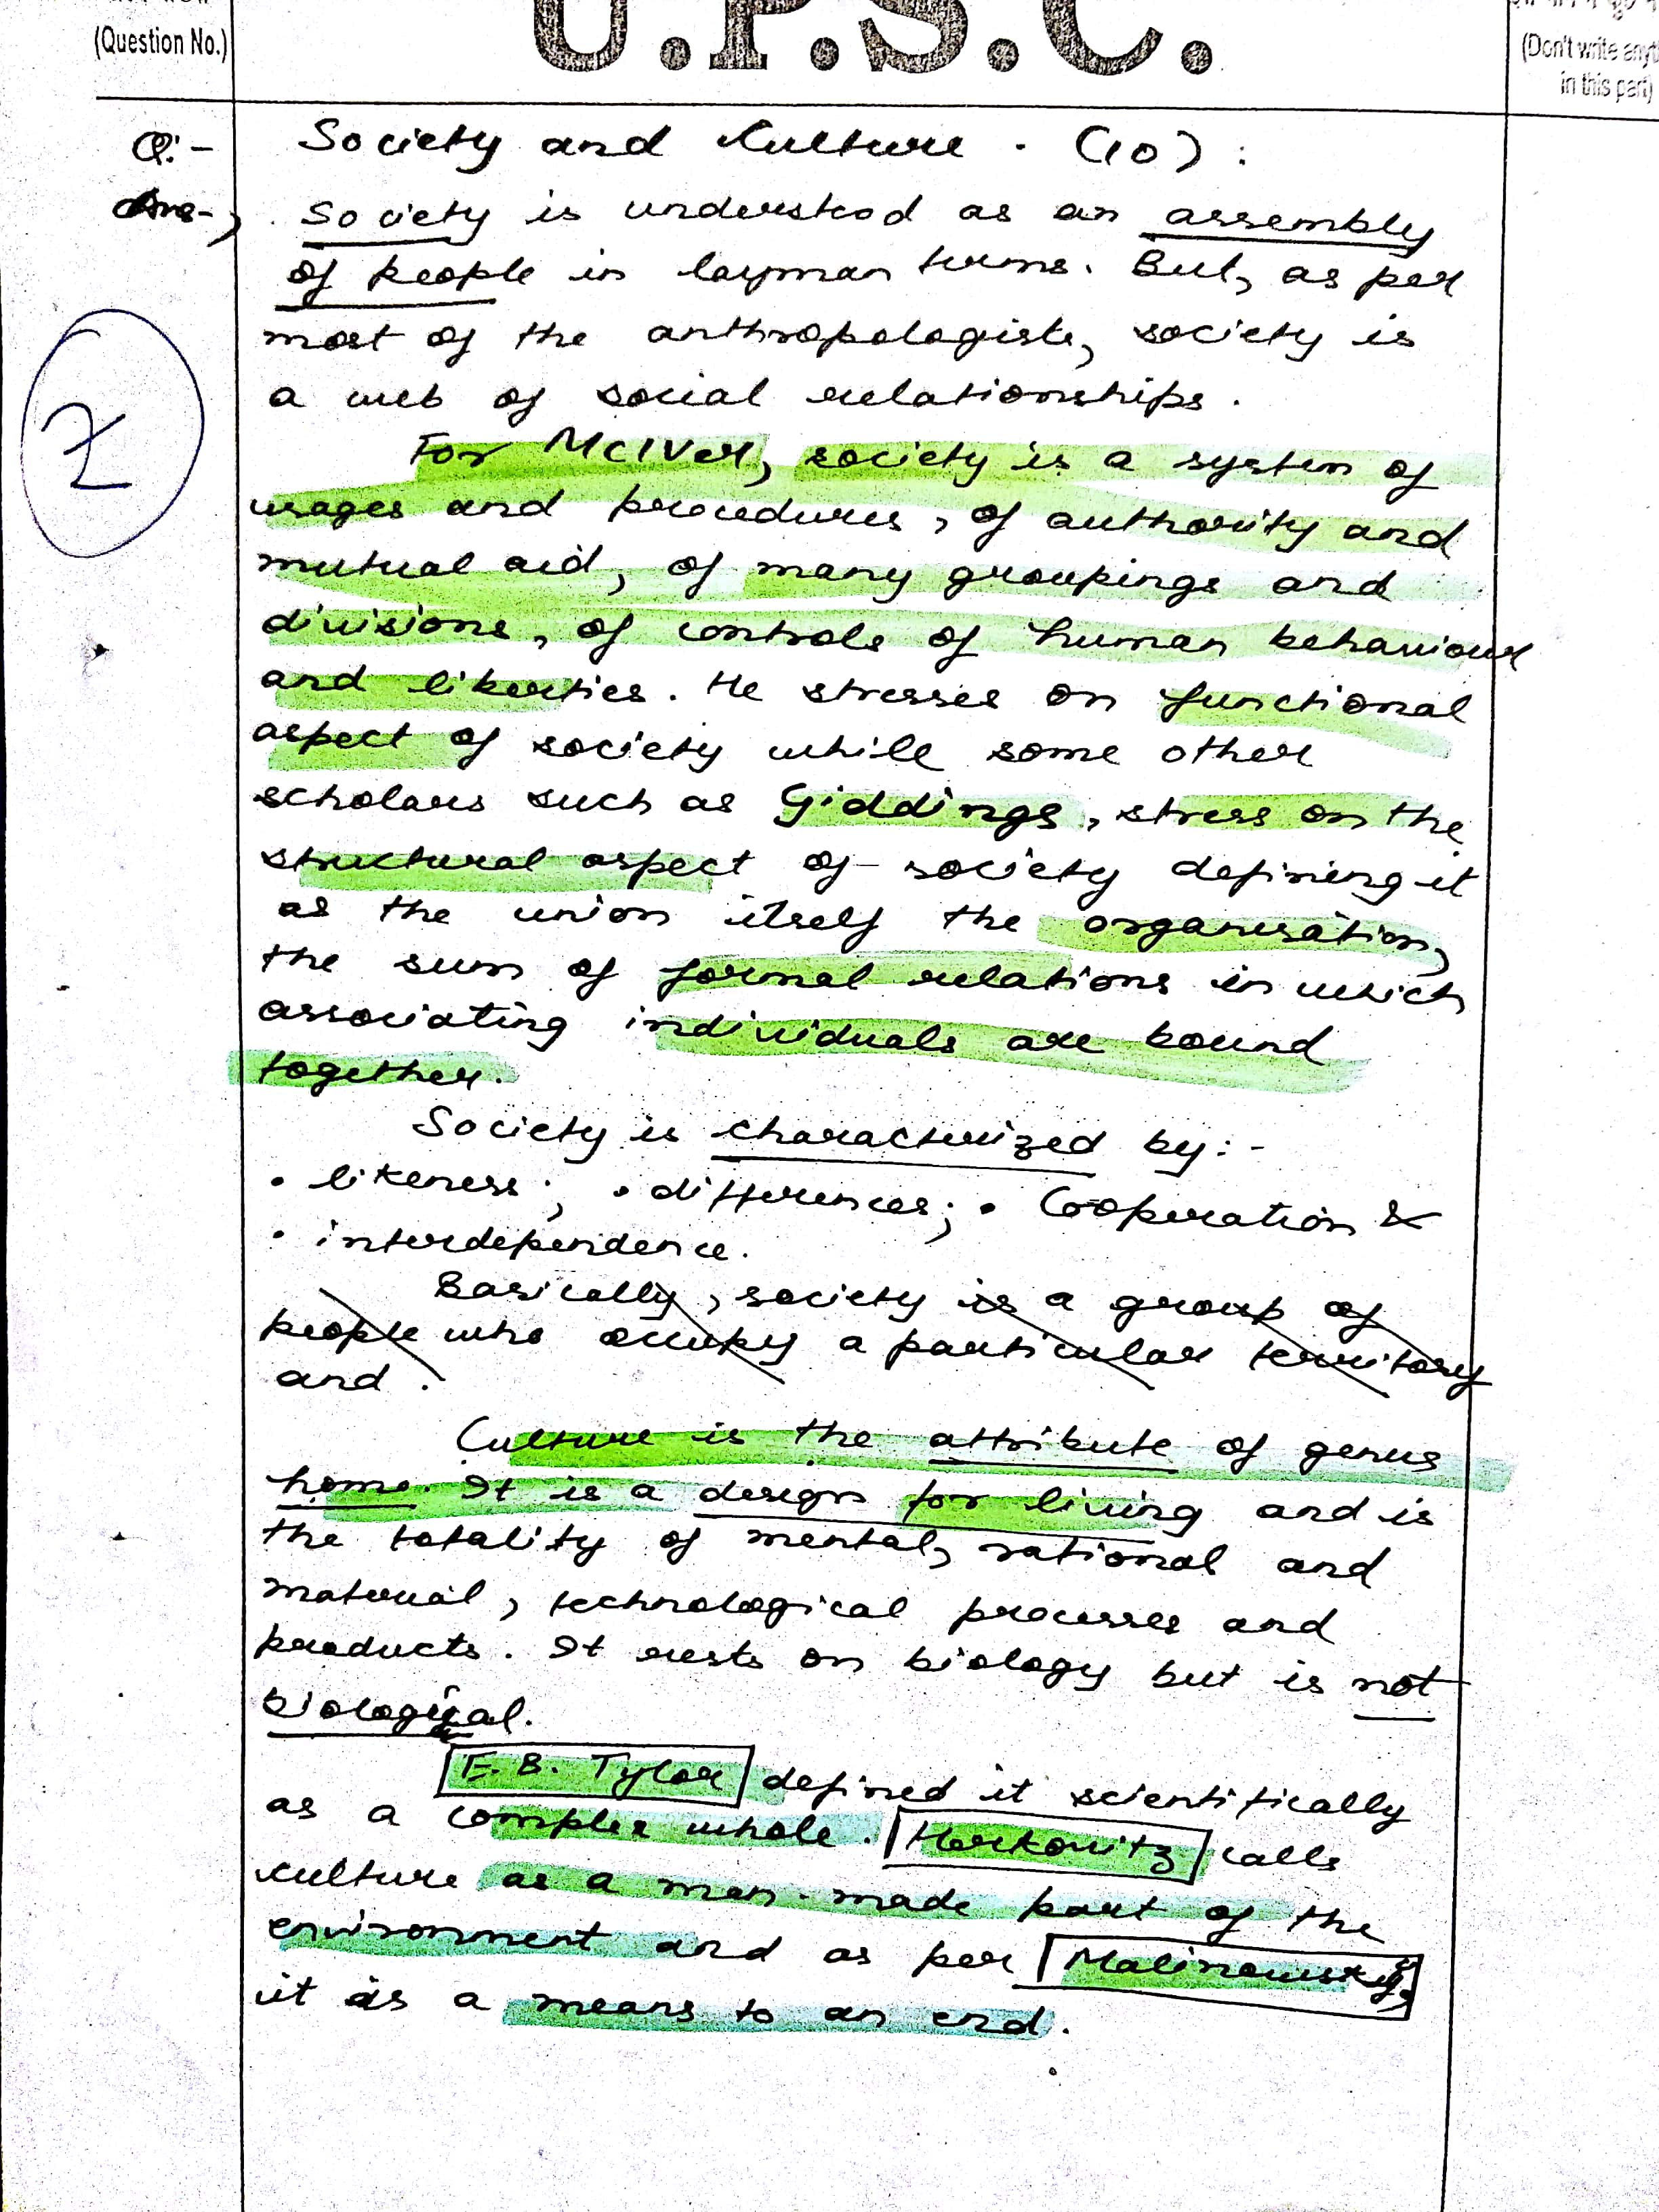 (Question No.)
U.P.S.C.
(Don't write anyt
in this part)
Q:- Society and Culture . (10) :
Ans-, Society is understood as an assembly
of people in layman terms. But, as per
most of the anthropologists, society is
a web of social relationships.
For McIver, society is a system of
usages and procedures, of authority and
mutual aid, of many groupings and
divisions, of controls of human behaviour
and liberties. He stresses on functional
aspect of society while some other
scholars such as Giddings, stress on the
structural aspect of society defining it
as the union itself the organisation,
the sum of formal relations in which
associating individuals are bound
together.
Society is characterized by:-
• likeness; • differences; • Cooperation &
• interdependence.
Basically, society is a group of
people who occupy a particular territory
and .
Culture is the attribute of genus
homo. It is a design for living and is
the totality of mental, rational and
material, technological processes and
products. It rests on biology but is not
biological.
E. B. Tylor defined it scientifically
as a complex whole. Herkovitz calls
culture as a man-made part of the
environment and as per Malinowsky,
it is a means to an end.